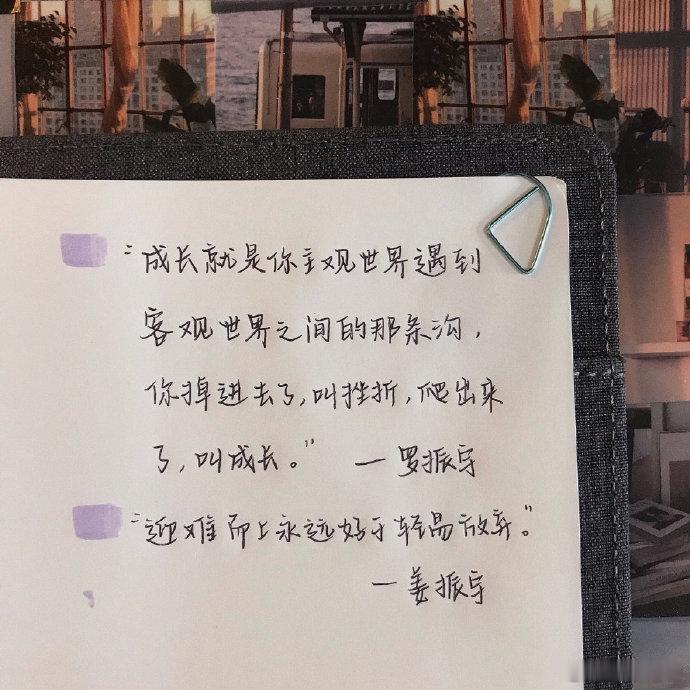 “成长就是你主观世界遇到
客观世界之间的那条沟，
你掉进去了，叫挫折，爬出来
了，叫成长。” —罗振宇
“迎难而上永远好于轻易放弃。”
—姜振宇